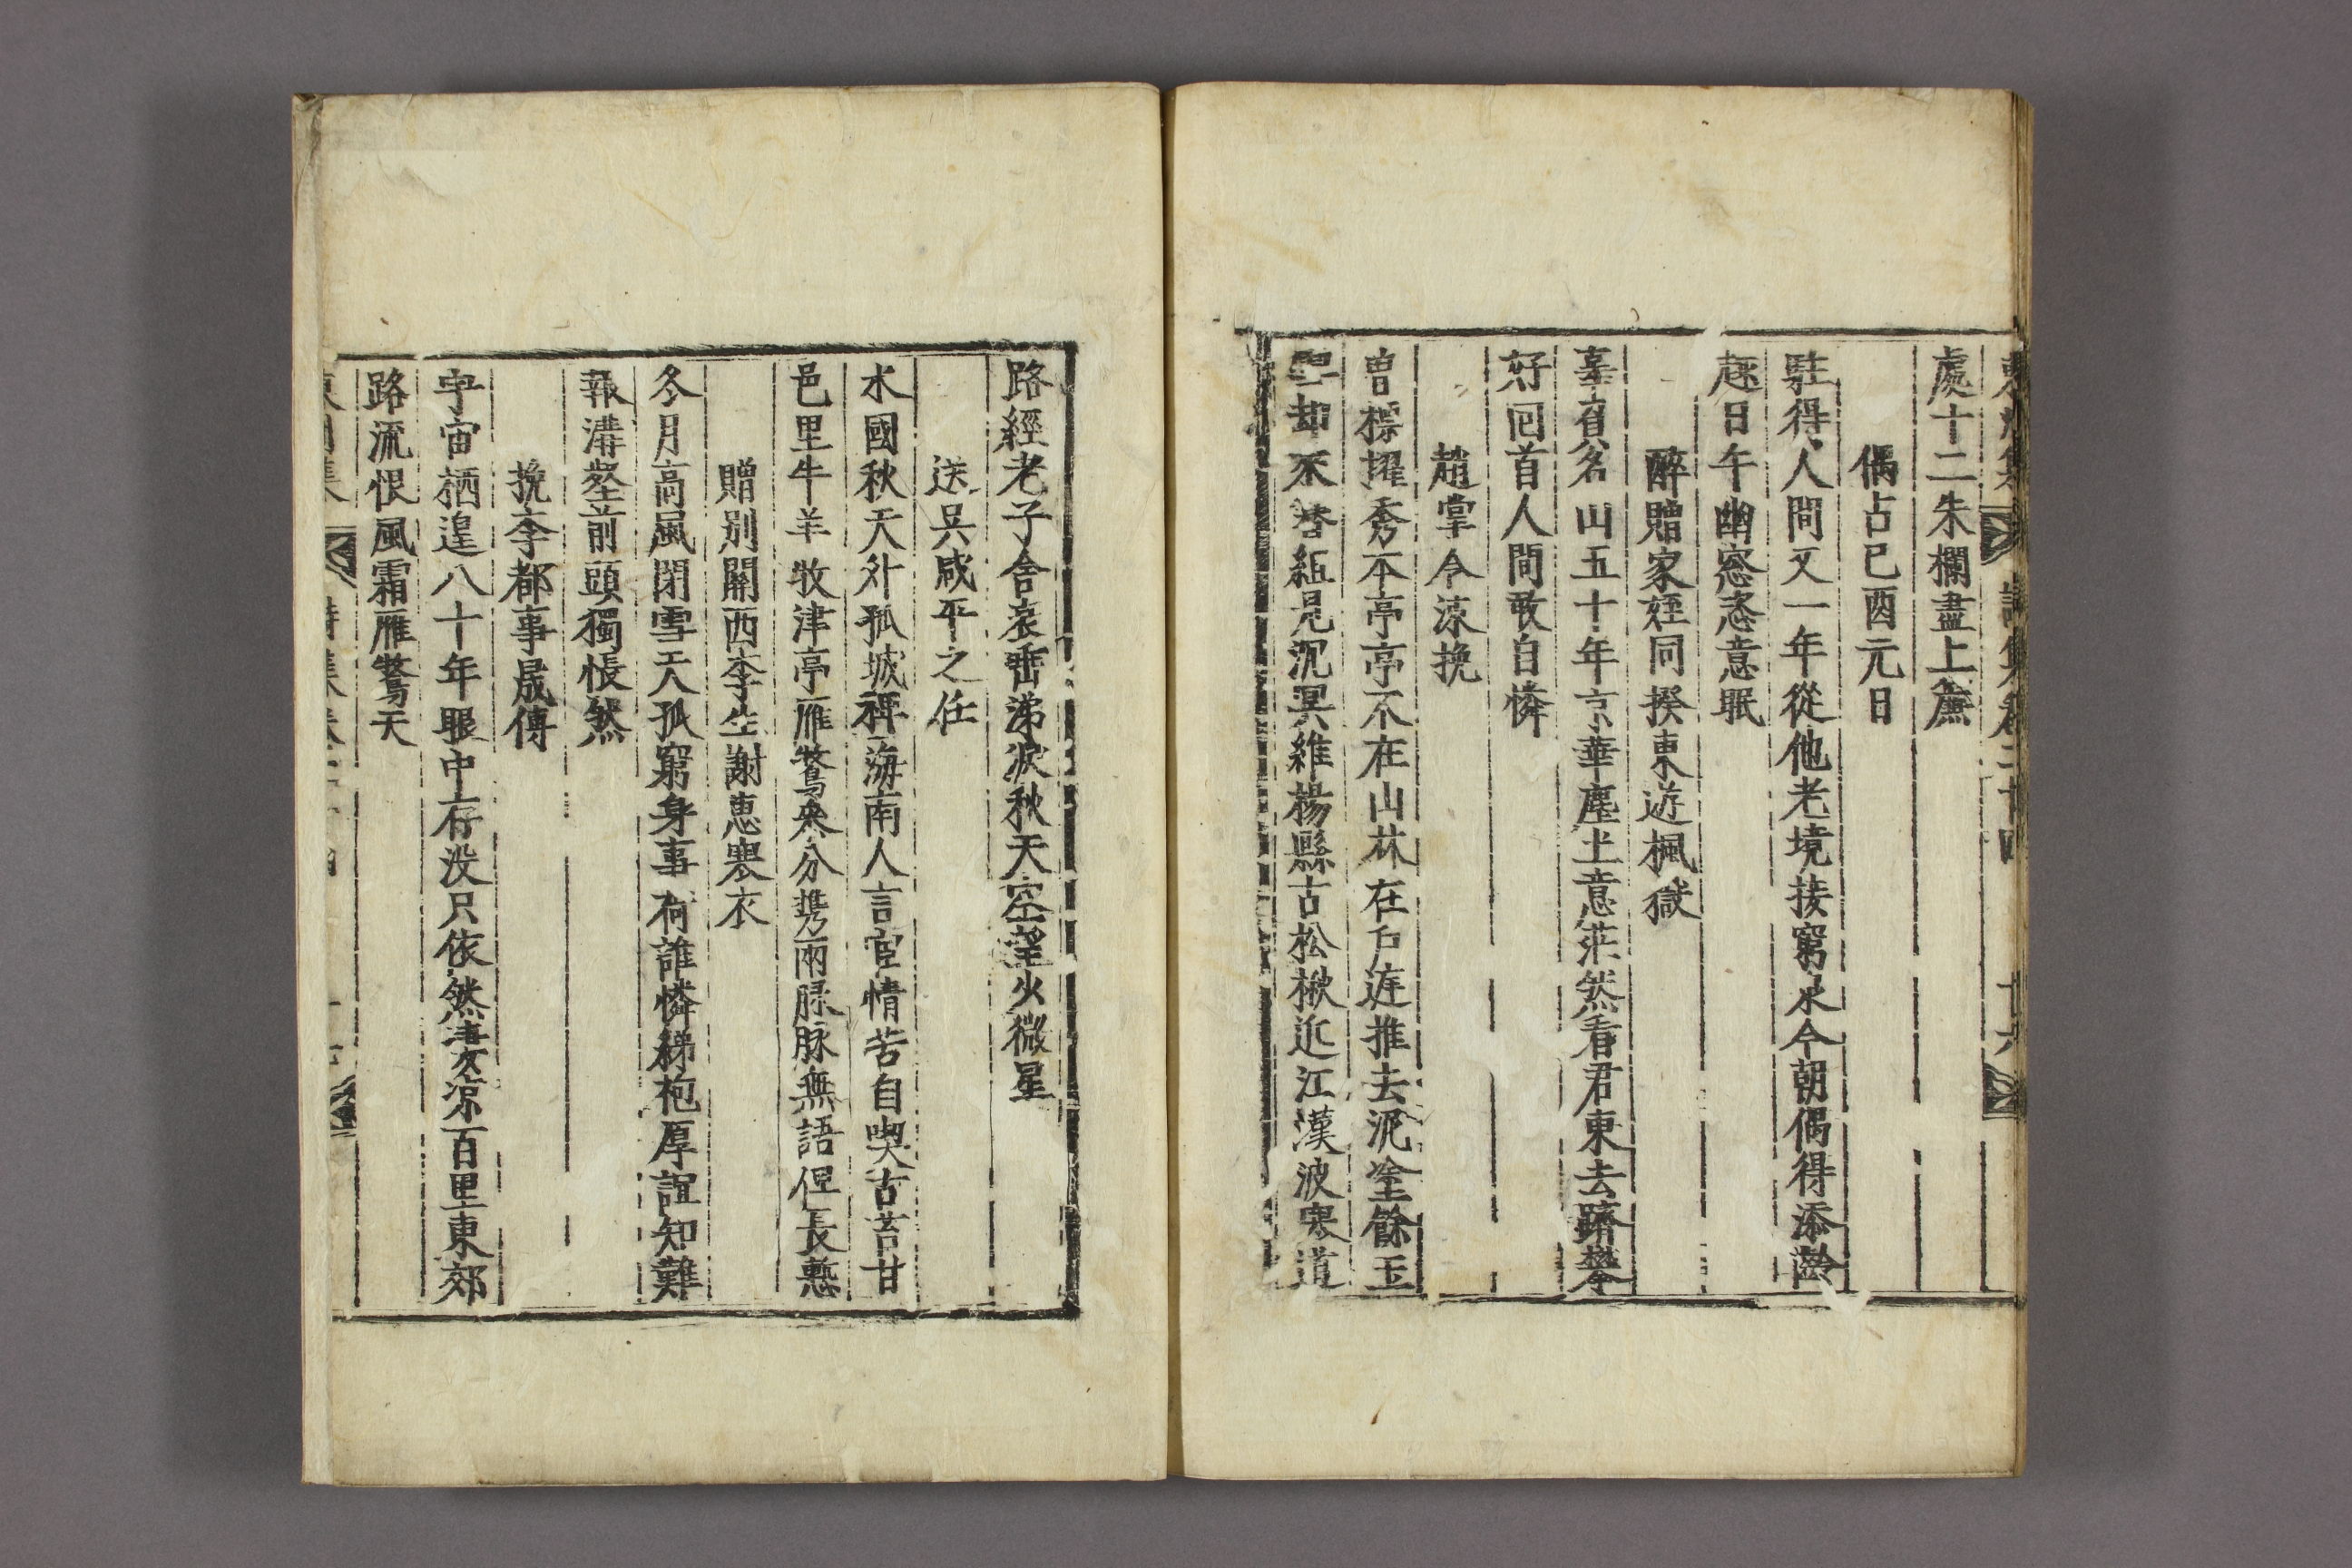 處十二朱欄盡上簾
偶占己酉元日
駐得人間又一年從他老境接窮水今朝偶得添齡
趣日午幽窓恣意眠
醉贈家姪同揆東遊楓嶽
辜負名山五十年京華塵土意茫然看君東去躋攀
好回首人間敢自憐
趙掌令涑挽
曾標擢秀不亭亭不在山林在戶庭推去泥塗餘玉
却不 組見沉冥維楊縣古松楸近江漢波寒道
路經老子舍哀垂涕淚秋天空望火微星
送吳咸平之任
水國秋天外孤城裨海南人言宦情苦自喫古苔甘
邑里牛羊牧津亭雁鶩叅分携兩脉脉無語但長慙
贈別關西李生謝惠寒衣
冬月高風閉雪天孤窮身事有誰憐綈袍厚誼知難
報溝壑前頭獨悵然
挽李都事晟傳
宇宙栖遑八十年眼中存沒只依然凄凉百里東郊
路流恨風霜雁鶩天